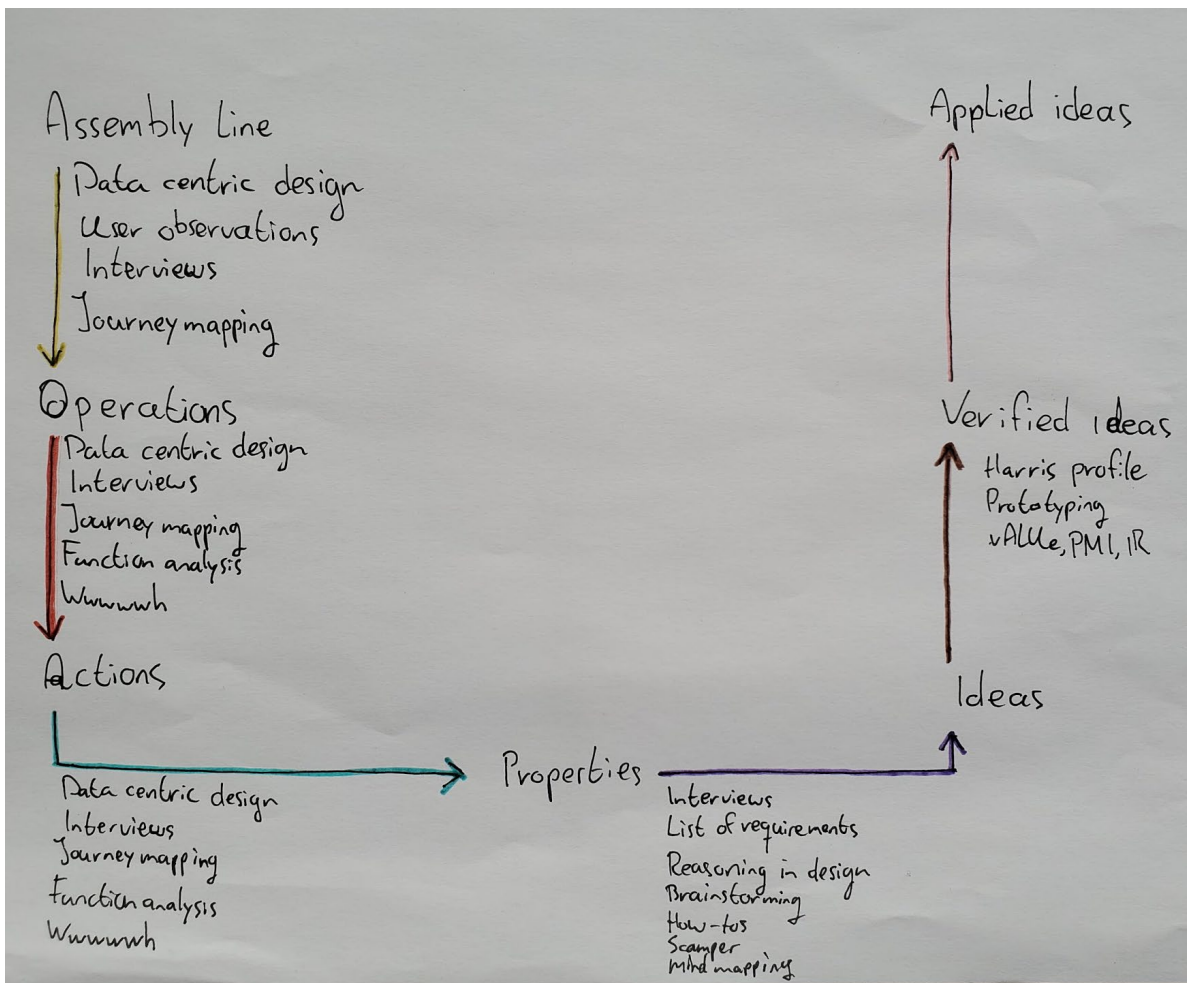 Assembly Line
Data centric design
User observations
Interviews
Journey mapping
Operations
Data centric design
Interviews
Journey mapping
Function analysis
Wwwwwh
Actions
Data centric design
Interviews
Journey mapping
Function analysis
Wwwwwh
Properties
Interviews
List of requirements
Reasoning in design
Brainstorming
How-tos
Scamper
Mind mapping
Ideas
Verified ideas
Harris profile
Prototyping
vALUe, PMI, IR
Applied ideas